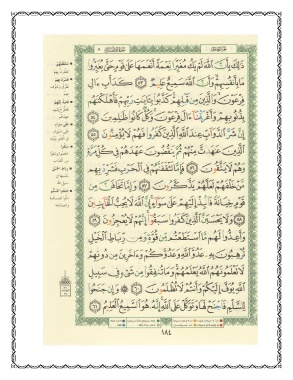 ذَٰلِكَ بِأَنَّ ٱللَّهَ لَمْ يَكُ مُغَيِّرًا نِّعْمَةً أَنْعَمَهَا عَلَىٰ قَوْمٍ حَتَّىٰ يُغَيِّرُوا۟
مَا بِأَنفُسِهِمْ وَأَنَّ ٱللَّهَ سَمِيعٌ عَلِيمٌ ٥٣ كَدَأْبِ ءَالِ
فِرْعَوْنَ وَٱلَّذِينَ مِن قَبْلِهِمْ كَذَّبُوا۟ بِـَٔايَٰتِ رَبِّهِمْ فَأَهْلَكْنَٰهُم
بِذُنُوبِهِمْ وَأَغْرَقْنَآ ءَالَ فِرْعَوْنَ وَكُلٌّ كَانُوا۟ ظَٰلِمِينَ ٥٤
إِنَّ شَرَّ ٱلدَّوَآبِّ عِندَ ٱللَّهِ ٱلَّذِينَ كَفَرُوا۟ فَهُمْ لَا يُؤْمِنُونَ ٥٥
ٱلَّذِينَ عَٰهَدتَّ مِنْهُمْ ثُمَّ يَنقُضُونَ عَهْدَهُمْ فِى كُلِّ مَرَّةٍ
وَهُمْ لَا يَتَّقُونَ ٥٦ فَإِمَّا تَثْقَفَنَّهُمْ فِى ٱلْحَرْبِ فَشَرِّدْ بِهِم
مَّنْ خَلْفَهُمْ لَعَلَّهُمْ يَذَّكَّرُونَ ٥٧ وَإِمَّا تَخَافَنَّ مِن
قَوْمٍ خِيَانَةً فَٱنۢبِذْ إِلَيْهِمْ عَلَىٰ سَوَآءٍ إِنَّ ٱللَّهَ لَا يُحِبُّ ٱلْخَآئِنِينَ
٥٨ وَلَا يَحْسَبَنَّ ٱلَّذِينَ كَفَرُوا۟ سَبَقُوٓا۟ إِنَّهُمْ لَا يُعْجِزُونَ ٥٩
وَأَعِدُّوا۟ لَهُم مَّا ٱسْتَطَعْتُم مِّن قُوَّةٍ وَمِن رِّبَاطِ ٱلْخَيْلِ
تُرْهِبُونَ بِهِۦ عَدُوَّ ٱللَّهِ وَعَدُوَّكُمْ وَءَاخَرِينَ مِن دُونِهِمْ
لَا تَعْلَمُونَهُمُ ٱللَّهُ يَعْلَمُهُمْ وَمَا تُنفِقُوا۟ مِن شَىْءٍ فِى سَبِيلِ
ٱللَّهِ يُوَفَّ إِلَيْكُمْ وَأَنتُمْ لَا تُظْلَمُونَ ٦٠ وَإِن جَنَحُوا۟
لِلسَّلْمِ فَٱجْنَحْ لَهَا وَتَوَكَّلْ عَلَى ٱللَّهِ إِنَّهُۥ هُوَ ٱلسَّمِيعُ ٱلْعَلِيمُ ٦١
١٨٤